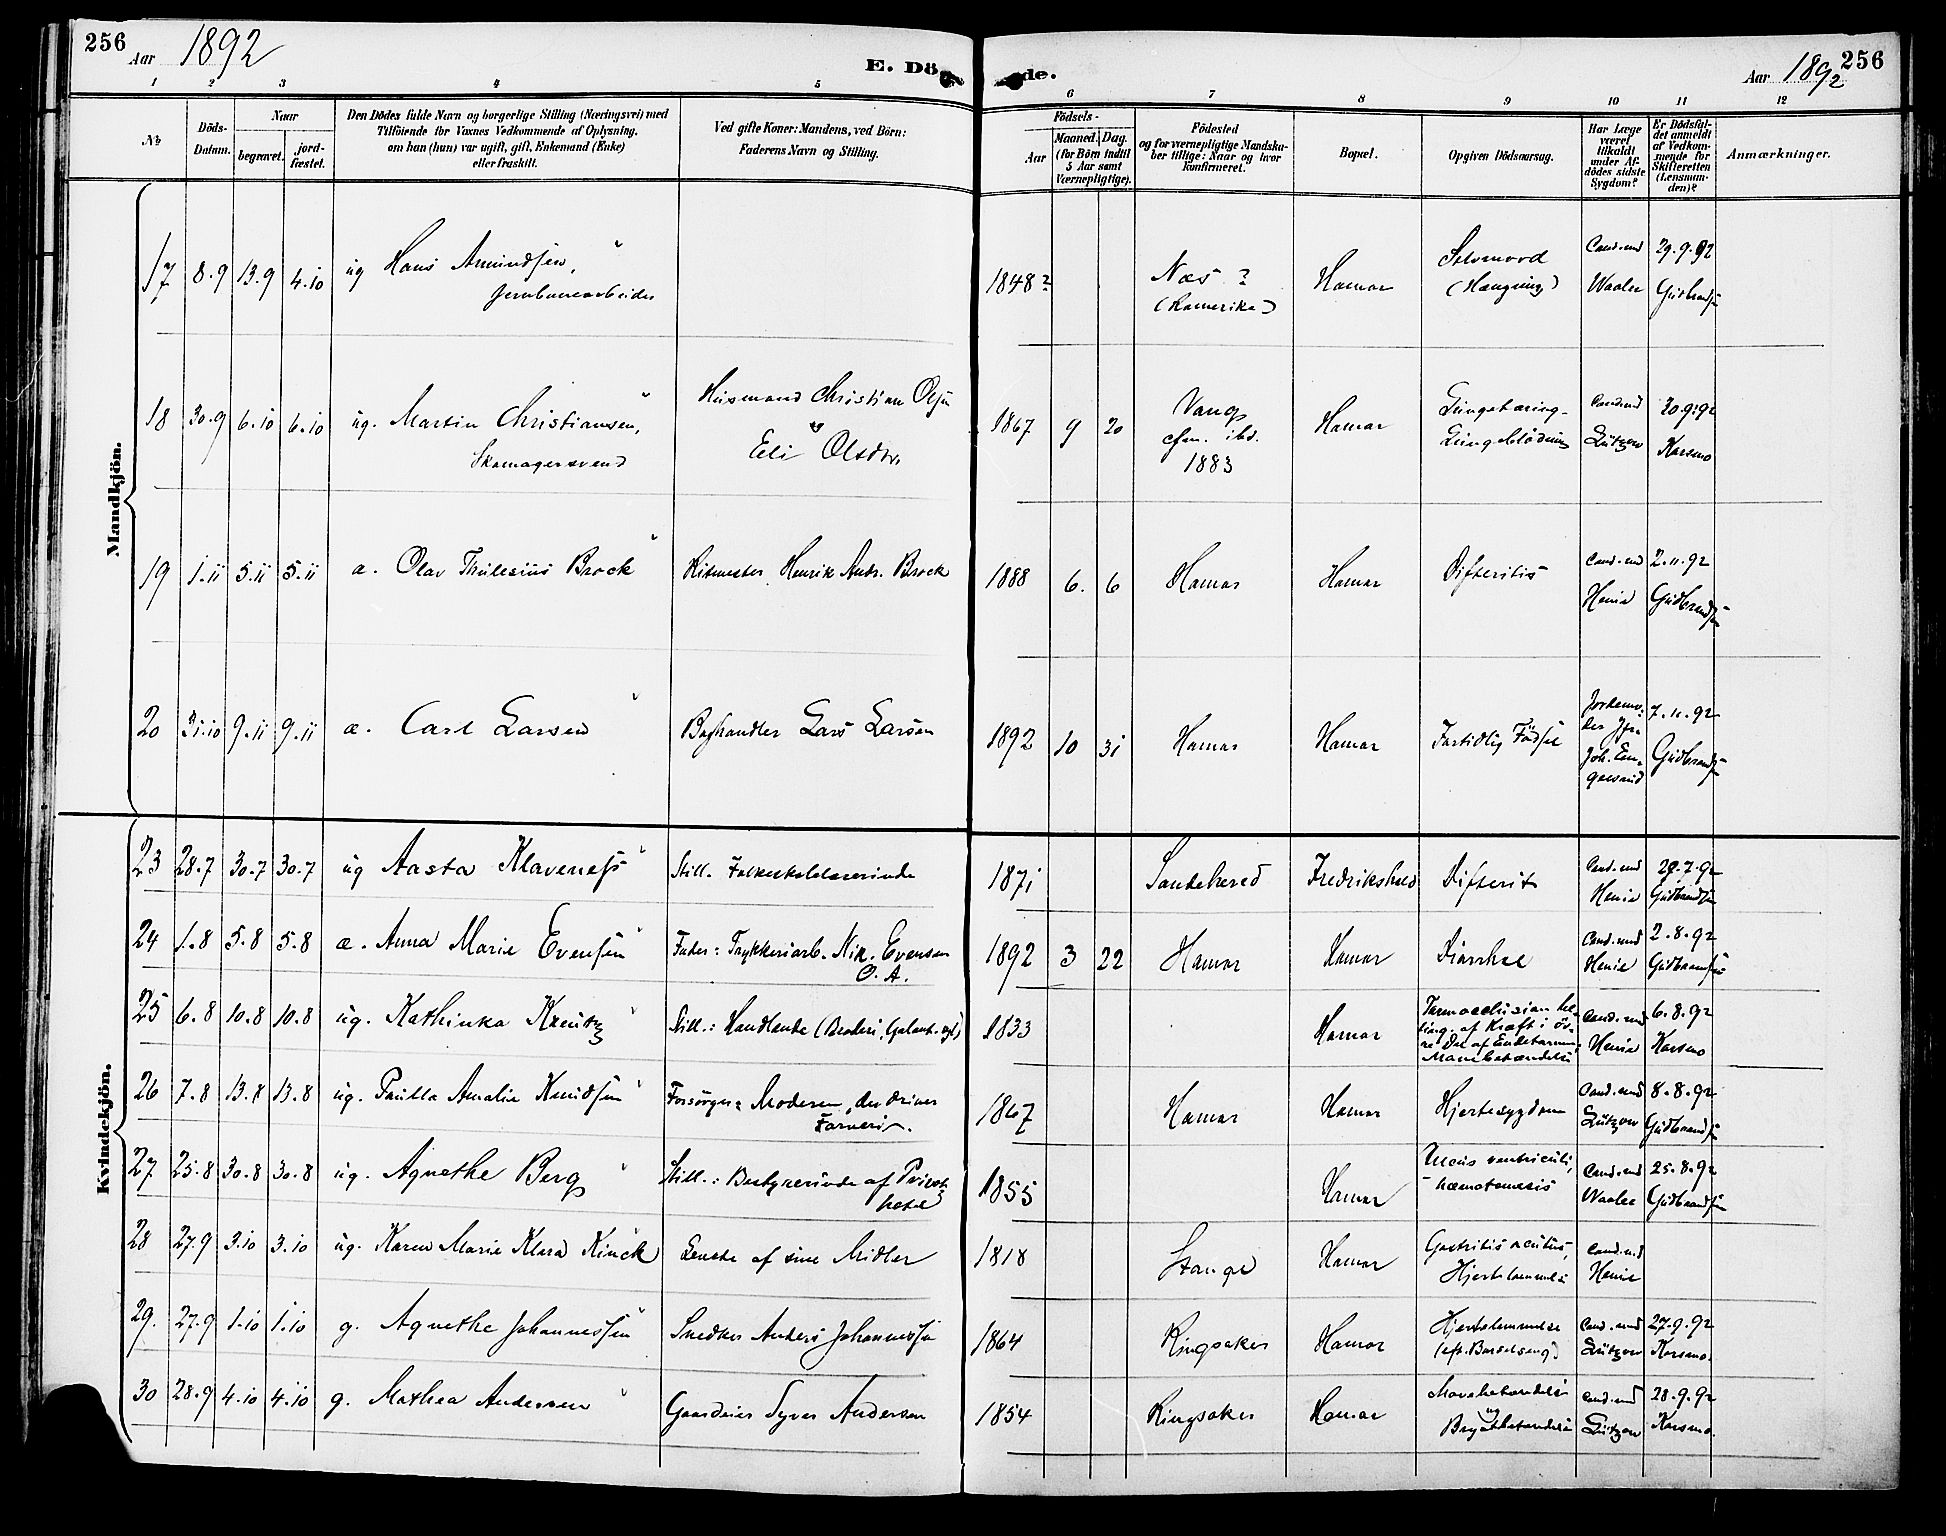 256 Aar 1892
E. Dö de.
Aar 1892 256
1 2 3 4 5 6 7 8 9 10 11 12
No
Döds-
Datum.
Naar
begravet.
jord-
fæstet.
Den Dödes fulde Navn og borgerlige Stilling (Næringsvei) med
Tilföiende for Voxnes Vedkommende af Oplysning.
om han (hun) var ugift, gift, Enkemand (Enke)
eller fraskilt.
Ved gifte Koner: Mandens, ved Börn:
Faderens Navn og Stilling.
Födsels-
Aar
Maaned. Dag.
(for Börn indtil
5 Aar samt
Værnepligtige).
Födested
og for værnepligtige Mandska-
ber tillige: Naar og hvor
konfirmeret.
Bopæl.
Opgiven Dödsaarsag.
Har Læge
været
tilkaldt
under Af-
dödes sidste
Sygdom?
Er Dödsfal-
det anmeldt
af Vedkom-
mende for
Skifteretten
(Lensman-
den)?
Anmærkninger.
Mandkjön.
17 8.9 13.9 4.10 ug Hans Amundsen,
Jernbanearbeider
1848? Næs ?
(Romerike)
Hamar
Selvmord
(Hængning)
Cand. med
Waaler
29.9.92
Gudbrandsen
18 30.9 6.10 6.10 ug. Martin Christiansen,
Skomagersvend
Husmand Christian Olsen
og
Eli Olsdtr.
1867 9 20 Vang
cfm. ibd.
1883
Hamar
Lungetæring-
Lungeblödning
Cand. md
Lützow
30.9.92
Korsmo
19 1.11 5.11 5.11 a. Olav Thulesius Brock
Ritmester Henrik Andr. Brock
1888 6. 6 Hamar Hamar Difteritis
Cand. md
Henie
2.11.92
Gudbrandsen
20 31.10 9.11 9.11 æ. Carl Larsen
Boghandler Lars Larsen
1892 10 31 Hamar Hamar Fortidlig Födsel
Jordemo-
der Jfr.
Joh. En-
7.11.92
Gudbrandsen
Kvindekjön.
23 28.7 30.7 30.7 ug Aasta Klaveness
Still. Folkeskolelærerinde
1871 Sandeherred Fredrikshald Difterit
Cand. med
Henie
29.7.92
Gudbrandsen
24 1.8 5.8 5.8 æ. Anna Marie Evensen
Fader: Trykkeriarb. Nik. Evensen
O. A.
1892 3 22 Hamar Hamar Diarrhæ
Cand. med
Henie
2.8.92
Gudbrandsen
25 6.8 10.8 10.8 ug. Kathinka Kreutz
Still.: Handlende (Broderi, Galant. ogl)
1833 Hamar
Tarmocclusion be-
ting. af Kræft i öv-
re Del af Endetarmen;
Mavebetændelse
Cand. med
Henie
6.8.92
Korsmo
26 7.8 13.8 13.8 ug. Amalie Knudsen
Forsörger: Moderen, der driver
Farveri.
1867 Hamar Hamar Hjertesygdom
Cand. md
Lützow
8.8.92
Gudbrandsen
27 25.8 30.8 30.8 ug. Agnethe Berg
Still.: Bestyrerinde af Privat-
hotel
1855 Hamar
Ulcus ventriculi,
- hæmatemesis
Cand. md
Waaler
25.8.92
Gudbrandsen
28 27.9 3.10 3.10 ug. Karen Marie Klara Kinck
Levede af sine Midler
1818 Stange Hamar
Gastritis acutus,
Hjertelammelse
Cand. md
Henie
29. 27.9 1.10 1.10 g. Agnethe Johannessen
Snedker Anders Johannessen
1864 Ringsaker Hamar
Hjertelammelse
(eft. Barselseng)
Cand. md
Lützow
27.9.92
Korsmo.
30 28.9 4.10 4.10 g. Mathea Andersen
Gaardeier Syver Andersen
1854 Ringsaker Hamar
Mavebetændelse
og
Brystbetændelse
Cand. md
Lützow
28.9.92
Korsmo.